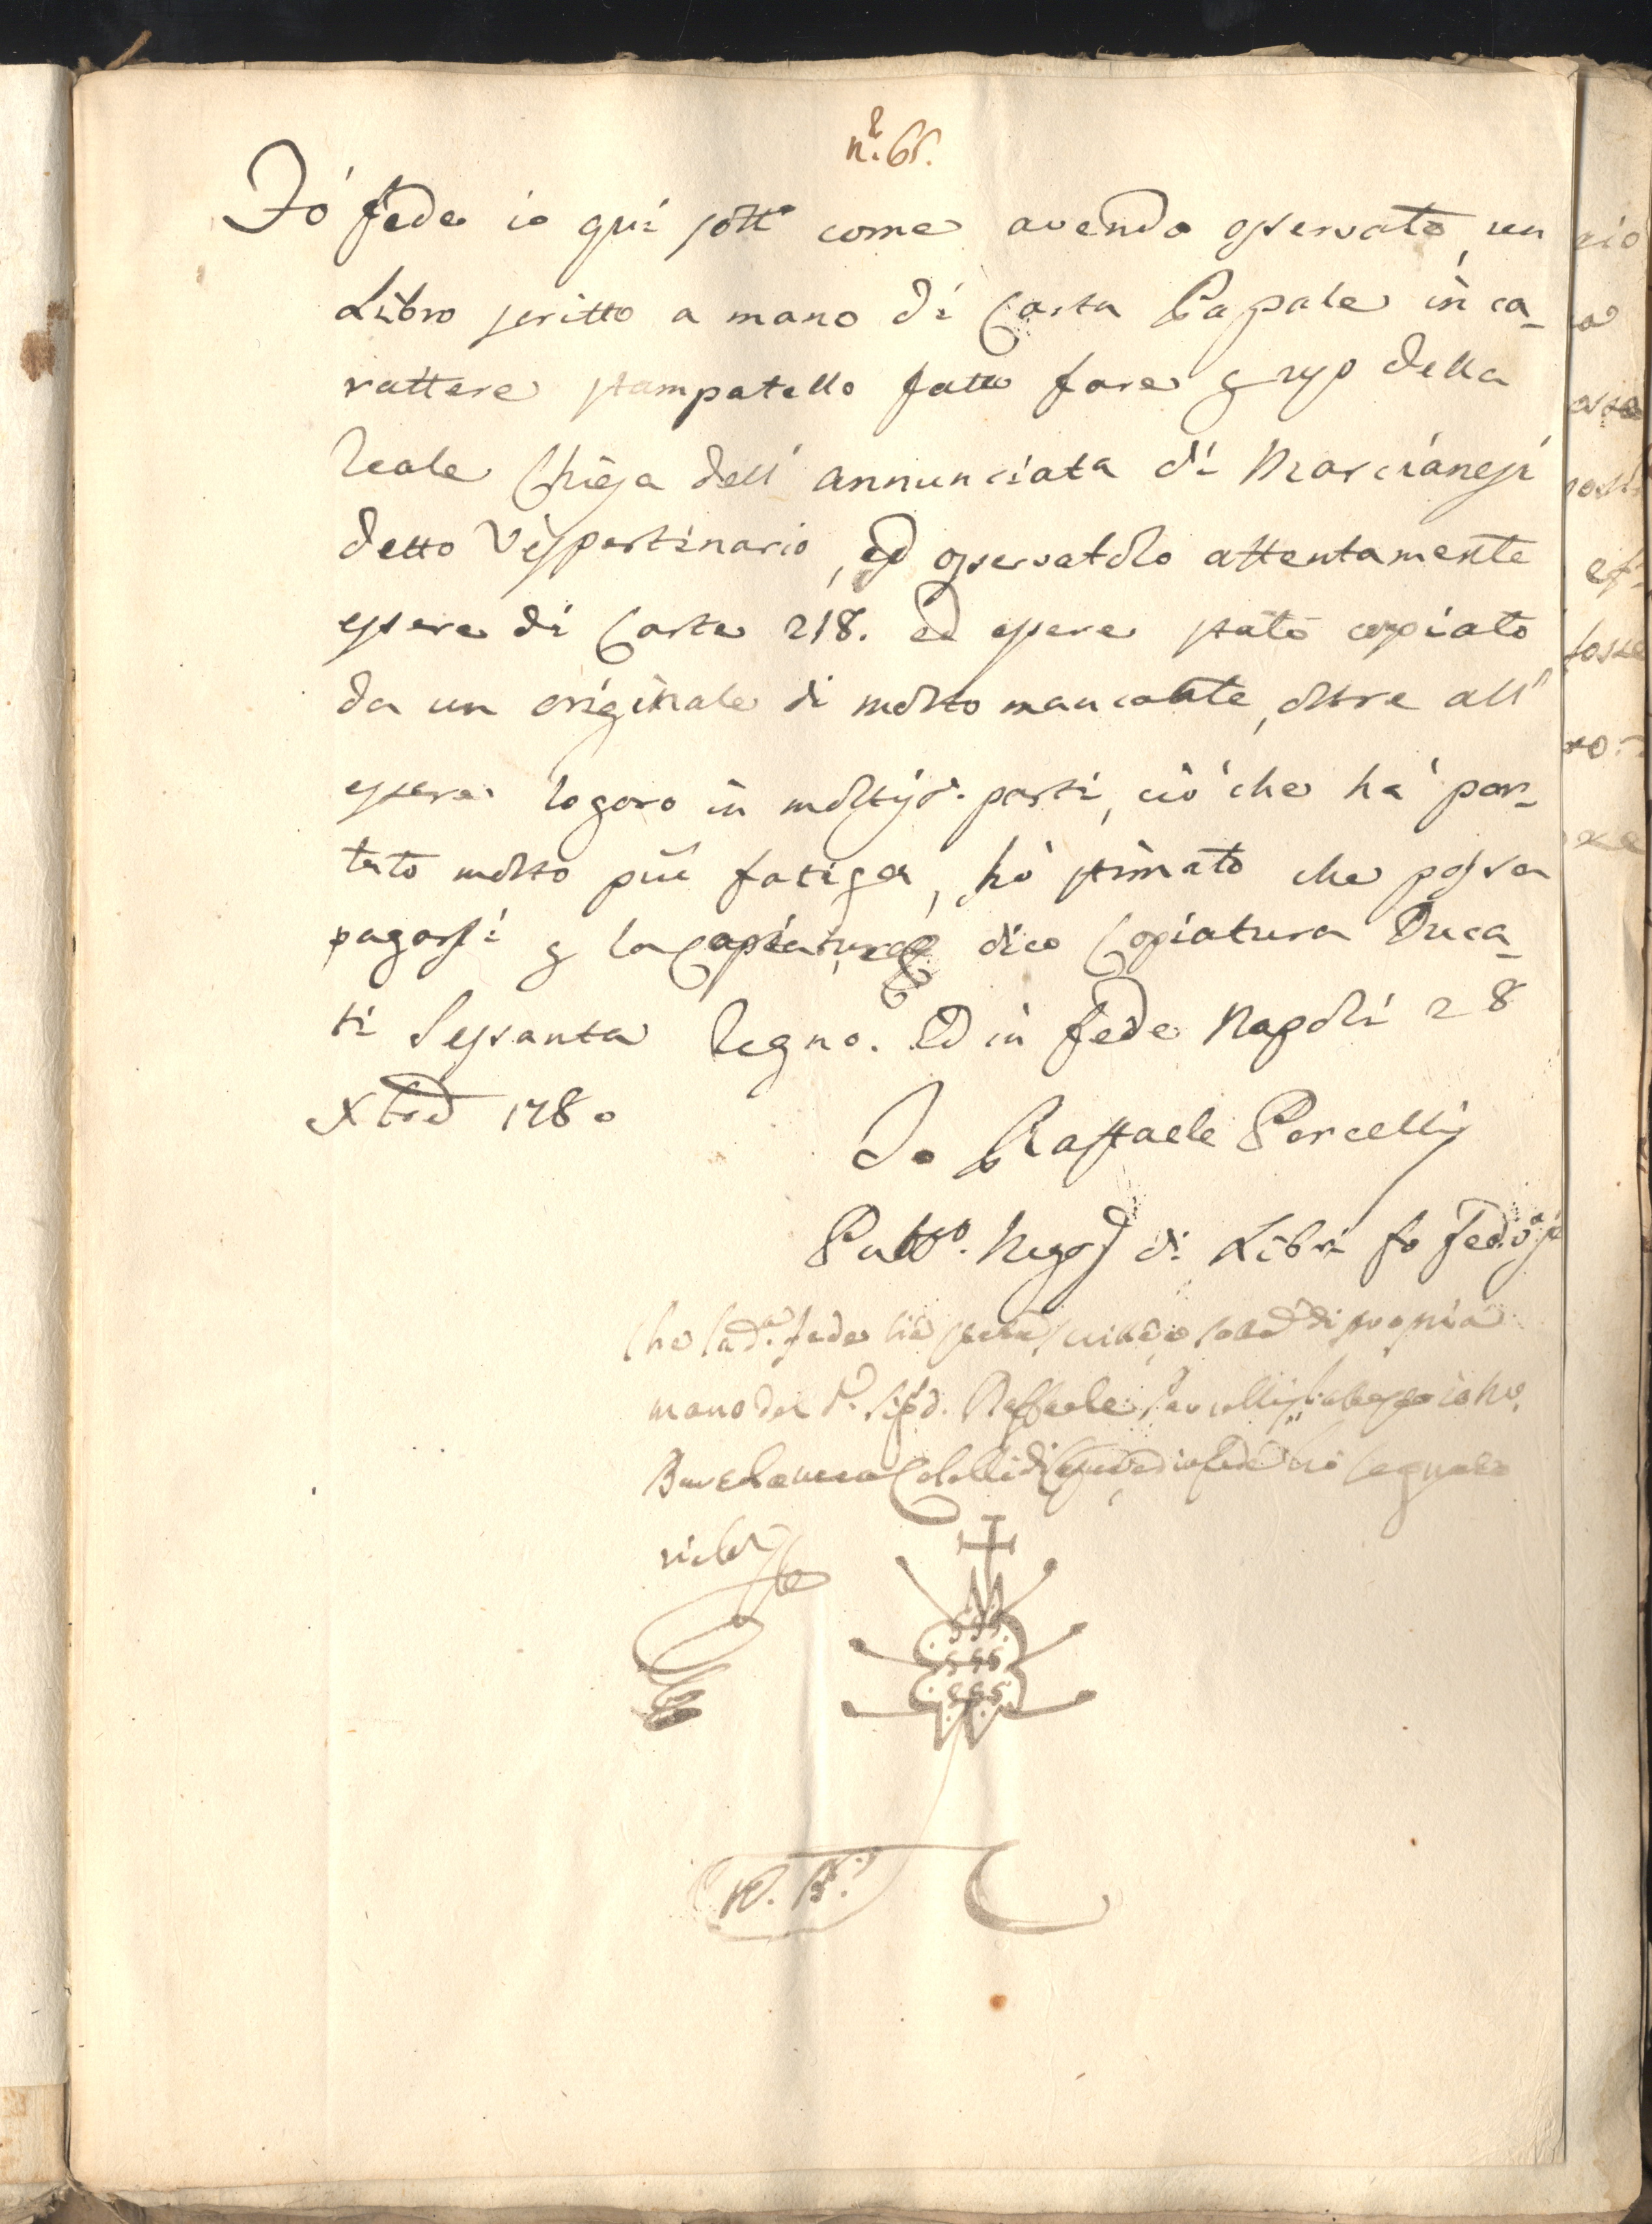 n.º 65.
Fò fede io quì sott.º come avendo osservato, un
Libro scritto a mano di Carta Papale in ca-
rattere stampatello fatto fare p uso della
Reale Chiesa dell' Annunciata di Marcianesi
detto Vespertinario, ed osservatolo attentamente
essere di Carte 218. ed essere stato copiato
da un originale di molto mancante, oltre all'
essere logoro in moltiss.e parti, ciò che hà por-
tato molto più fatiga, hò stimato che possa
pagarsi p la Copiatura dico Copiatura Duca-
ti Sessanta Regno. Ed in fede Napoli 28
Xbre 1780
Io Raffaele Porcelli
Pubb.º Neg.te di Libri fo fede
che la d.ª fede sia stata
mano del d.º Sig.r d. Raffaele Porcelli
segnato